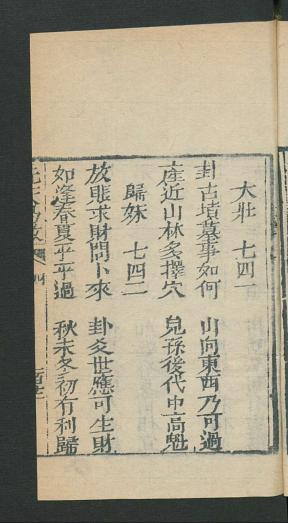 大壯　七四一
卦古墳墓事如何　山向東西乃可過
產近山林多擇穴　兒孫後代中高魁
歸妹　七四二
放賬求財問卜來　卦爻世應可生財
如逢春夏平平過　秋末冬初有利歸